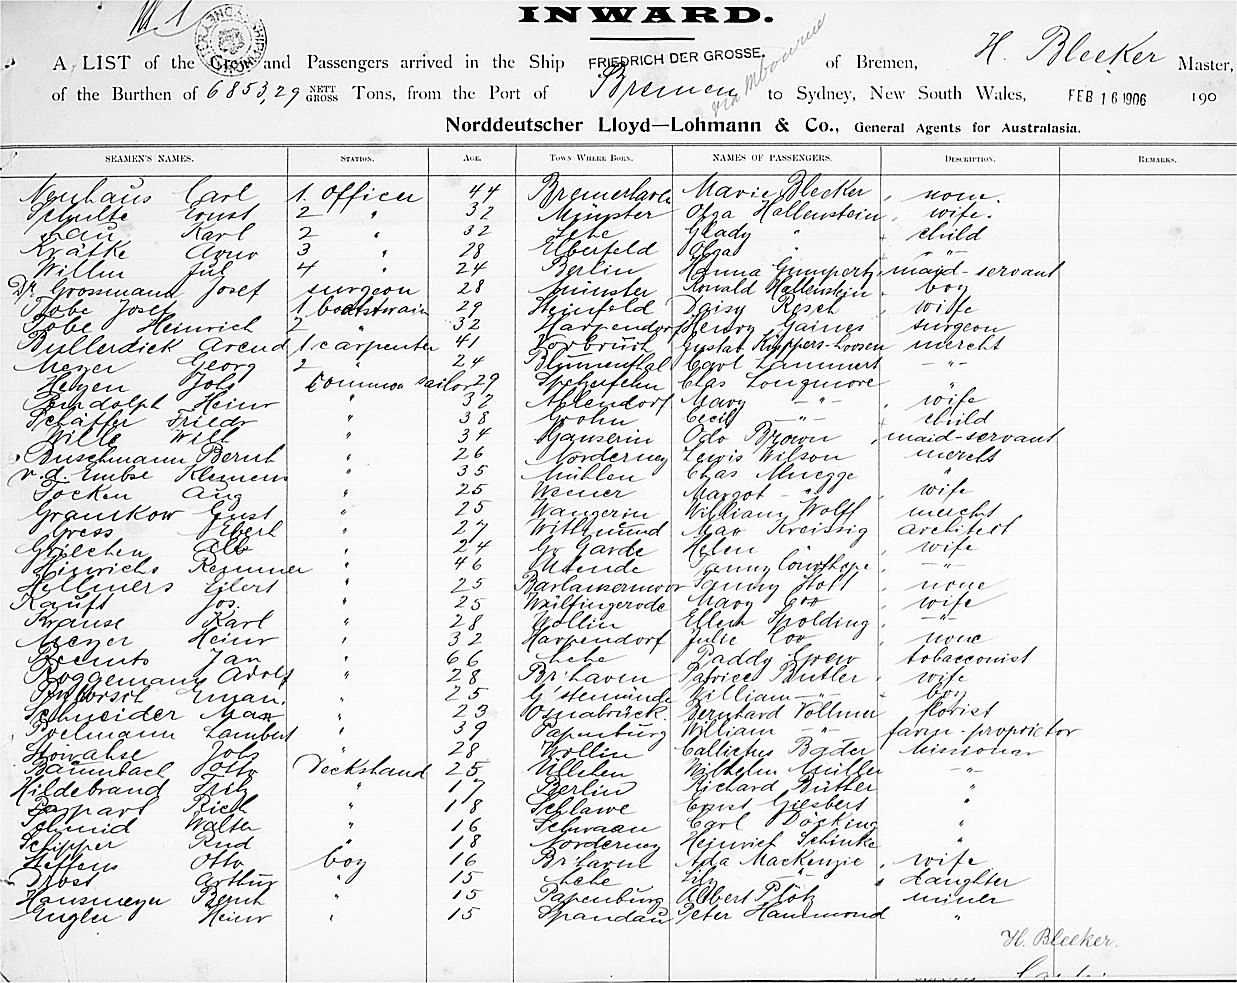 INWARD.
A LIST of the Crew and Passengers arrived in the Ship FRIEDRICH DER GROSSE, of Bremen, H. Bleeker Master,
of the Burthen of 6853,29 NETT GROSS Tons, from the Port of Bremen via Mbourne to Sydney, New South Wales, FEB 16 1906 190
Norddeutscher Lloyd—Lohmann & Co., General Agents for Australasia.
SEAMEN'S NAMES. STATION. AGE. TOWN WHERE BORN. NAMES OF PASSENGERS. DESCRIPTION. REMARKS.
Neuhaus Carl 1. Officer 44 Bremerhave Marie Bleeker none.
Schulte Ernst 2 " 32 Münster Olga Hallenstein, wife.
Lau Karl 2 " 32 Lehe Glady " child
Krätke Arno 3 " 28 Elberfeld Olga " " "
Willm Jul 4 " 24 Berlin Hanna Gumpertz maid-servant
Dr. Grossmann Josef surgeon 28 Münster Ronald Hallenstein, boy
Tobe Josef 1 boatstwain 29 Steinfeld Daisy Resch, wife
Tobe Heinrich 2 " 32 Harpendorf Henry Gaines surgeon
Bullerdiek Arend 1 carpenter 41 Vorbruch Gustab Küppers-Loosen mercht
Meyer Georg 2 " 24 Blumenthal Carl Lammers - " -
Heyen Johs common sailor 29 Spetzerfehn Chas Longmore "
Rudolph Heinr " 32 Ahlendorf Mary - " - , wife
Schäffer Friedr " 38 Grohn Cecil - " - child
Wille Will " 34 Ganserin Odo Brown , maid-servant
Buschmann Bernh " 26 Norderney Lewis Wilson mercht
v. d. Embse Klemens " 35 Mühlen Chas Muegge "
Tocken Aug " 25 Weener Margot - " - , wife
Gramkow Ernst " 25 Wangerin William Wolff mercht
Gress Eberh " 27 Wittmund Max Kreissig architekt
Grilchen Alb " 24 Gr Garde Helen " , wife
Hinrichs Remmer " 46 Utende Fanny , - " -
Hellmers Eilert " 25 Barlamermoor Fanny Holt , none
Kauft Jos. " 25 Wülfingerode Mary Coo , wife
Krause Karl " 28 Wollin Ellen Spolding, - " -
Meyer Heinr " 32 Harpendorf Julie Coo , none
Jan " 66 Lehe Paddy Grew tobacconist
Roggemann Adolf " 28 Br'haven Patrice Butler , wife
Eman. " 25 G'stemünde William - " - boy
Schneider Max " 23 Osnabrück. Bernhard Vollmer florist
Poelmann Lambert " 39 Papenburg William - " - farm-proprietor
Johs " 28 Wollin Callictus Bader Missionar
Baumbach Otto Deckshand 25 Ullchen Wilhelm Müller - " -
Hildebrand Fritz " 17 Berlin Richard Bütter "
Parpart Rich " 18 Schlawe Ernst Giesbert "
Schmid Walter " 16 Schwaan Carl Döcking "
Schipper Rud " 18 Norderney Heinrich Schinke "
Steffens Otto boy 16 Br'haven Ada MacKenzie , wife
Trost Arthur " 15 Lehe Lily - " - daughter
Hausmeyer Bernh " 15 Papenburg Albert Plötz miner
Engler Heinr " 15 Spandau Peter Hammond "
H. Bleeker.